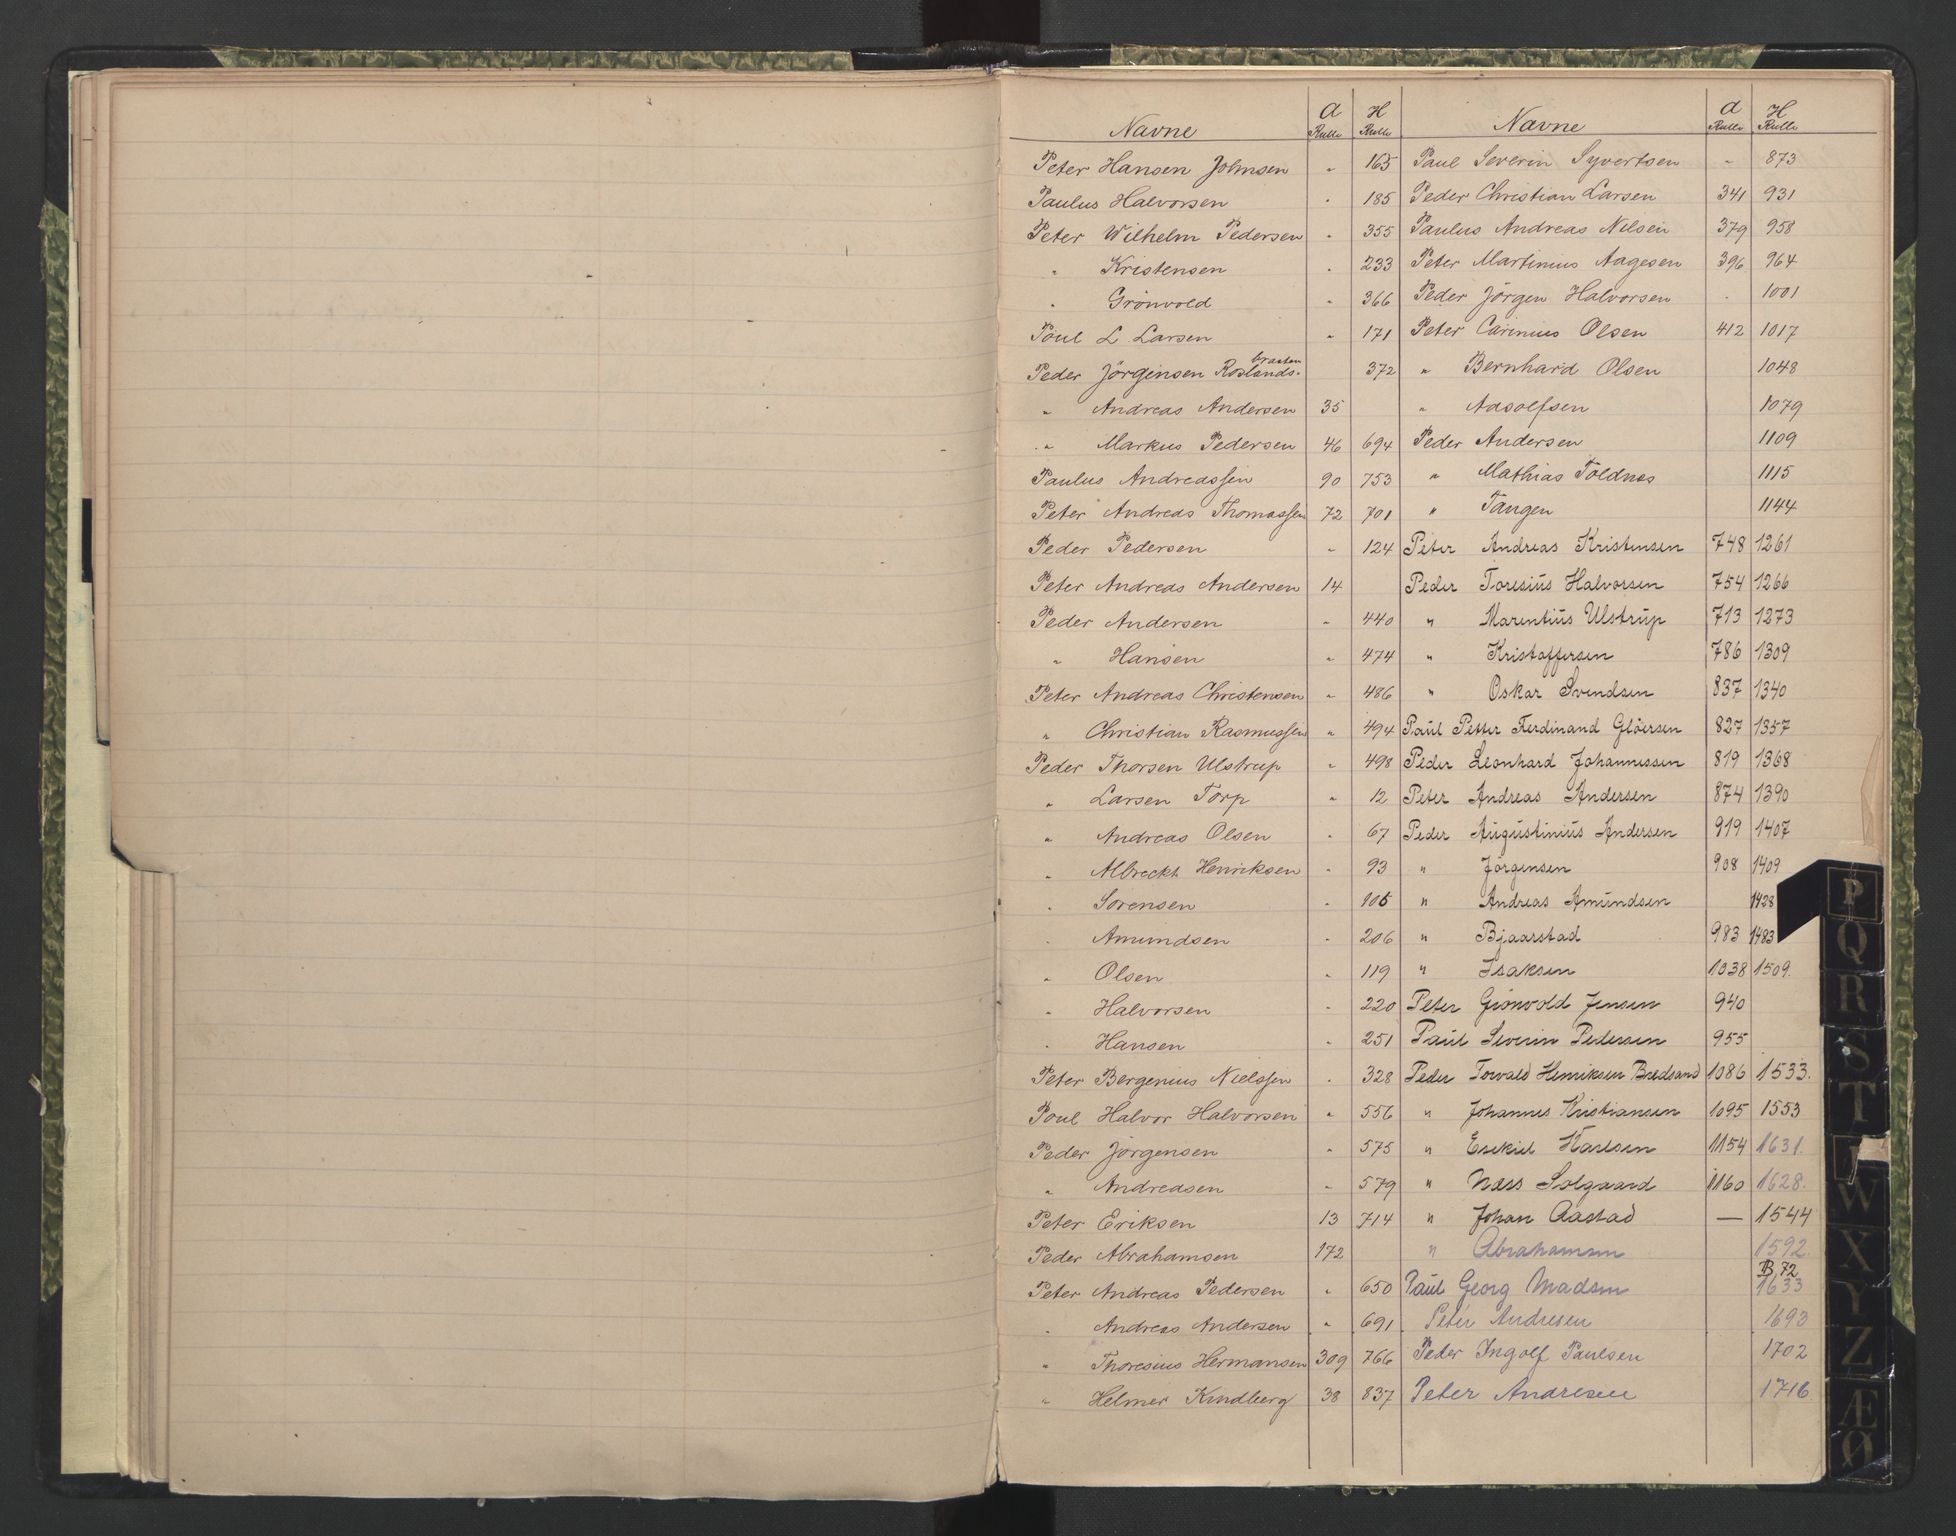 Navne A Rulle H Rulle
Peter Hansen Johnsen " 165
Paulus Halvorsen " 185
Peter Wilhelm Pedersen " 355
" Kristensen " 233
" Grönvold " 366
Poul L Larsen " 171
Peder Jörgensen Roslands-braaten 372
" Andreas Andersen 35
" Markus Pedersen 46 694
Paulus Andreassen 90 753
Peter Andreas Thomassen 72 701
Peder Pedersen " 124
Peter Andreas Andersen 14
Peder Andersen " 440
" Hansen " 474
Peter Andreas Christensen " 486
" Christian Rasmussen " 494
Peder Thorsen Ulstrup " 498
" Larsen Torp " 12
" Andreas Olsen " 67
" Albreckt Henriksen " 93
" Sörensen " 105
" Amundsen " 206
" Olsen " 119
" Halvorsen " 220
" Hansen " 251
Peter Bergenius Nielssen " 328
Poul Halvor Halvorsen " 556
Peder Jörgensen " 575
" Andreasen " 579
Peter Eriksen 13 714
Peder Abrahamsen 172
Peter Andreas Pedersen " 650
" Andreas Andersen " 691
" Thoresius Hermansen 309 766
" Helmer Kindberg 38 837
Navne A Rulle H Rulle
Paul Severin Syvertsen " 873
Peder Christian Larsen 341 931
Paulus Andreas Nilsen 379 958
Peter Martinius Aagesen 396 964
Peder Jörgen Halvorsen " 1001
Peter Carinius Olsen 412 1017
" Bernhard Olsen 1048
" Adolfsen 1079
Peder Andersen 1109
" Mathias Toldnes 1115
" Tangen 1144
Peter Andreas Kristensen 748 1261
Peder Toresius Halvorsen 754 1266
" Marentius Ulstrup 713 1273
" Kristoffersen 786 1309
" Oskar Svendsen 837 1340
Paul Petter Ferdinand Glöersen 827 1357
Peder Leonhard Johannessen 819 1368
Peter Andreas Andersen 874 1390
Peder Augustinius Andersen 919 1407
" Jörgensen 908 1409
" Andreas Amundsen 1428
" Bjaarstad 983 1483
" Isaksen 1038 1509.
Peter Grönvold Jensen 940
Paul Severin Pedersen 955
Peder Torvald Henriksen Bredsand 1086 1533.
" Johannes Kristiansen 1095 1553
" Esekiel Karlsen 1154 1631.
" Næss Solgaard 1160 1628.
" Johan Aastad — 1544
" Abrahamsen 1592.
Paul Georg Madsen B. 72 1633
Peter Andresen 1693
Peder Ingolf Paulsen 1702
Peter Andresen 1716
P
Q
R
S
T
W
X
Y
Z
Æ
Ø